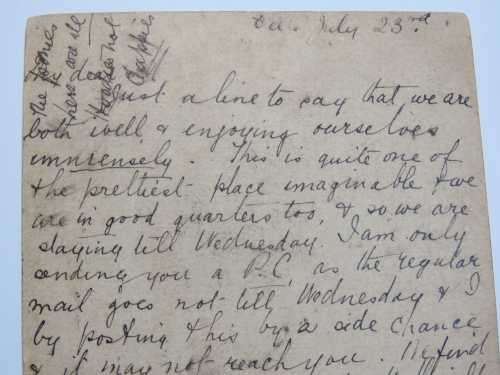 July 23rd
dear
Just a line to say that we are
both well & enjoying ourselves
immensely. This is quite one of
the prettiest place imaginable & we
are in good quarters too, & so we are
staying till Wednesday. I am only
sending you a P.C. as the regular
mail goes not till Wednesday & I
by posting this by a side chance
& it may not reach you. We find
The
here are all
not
chappies